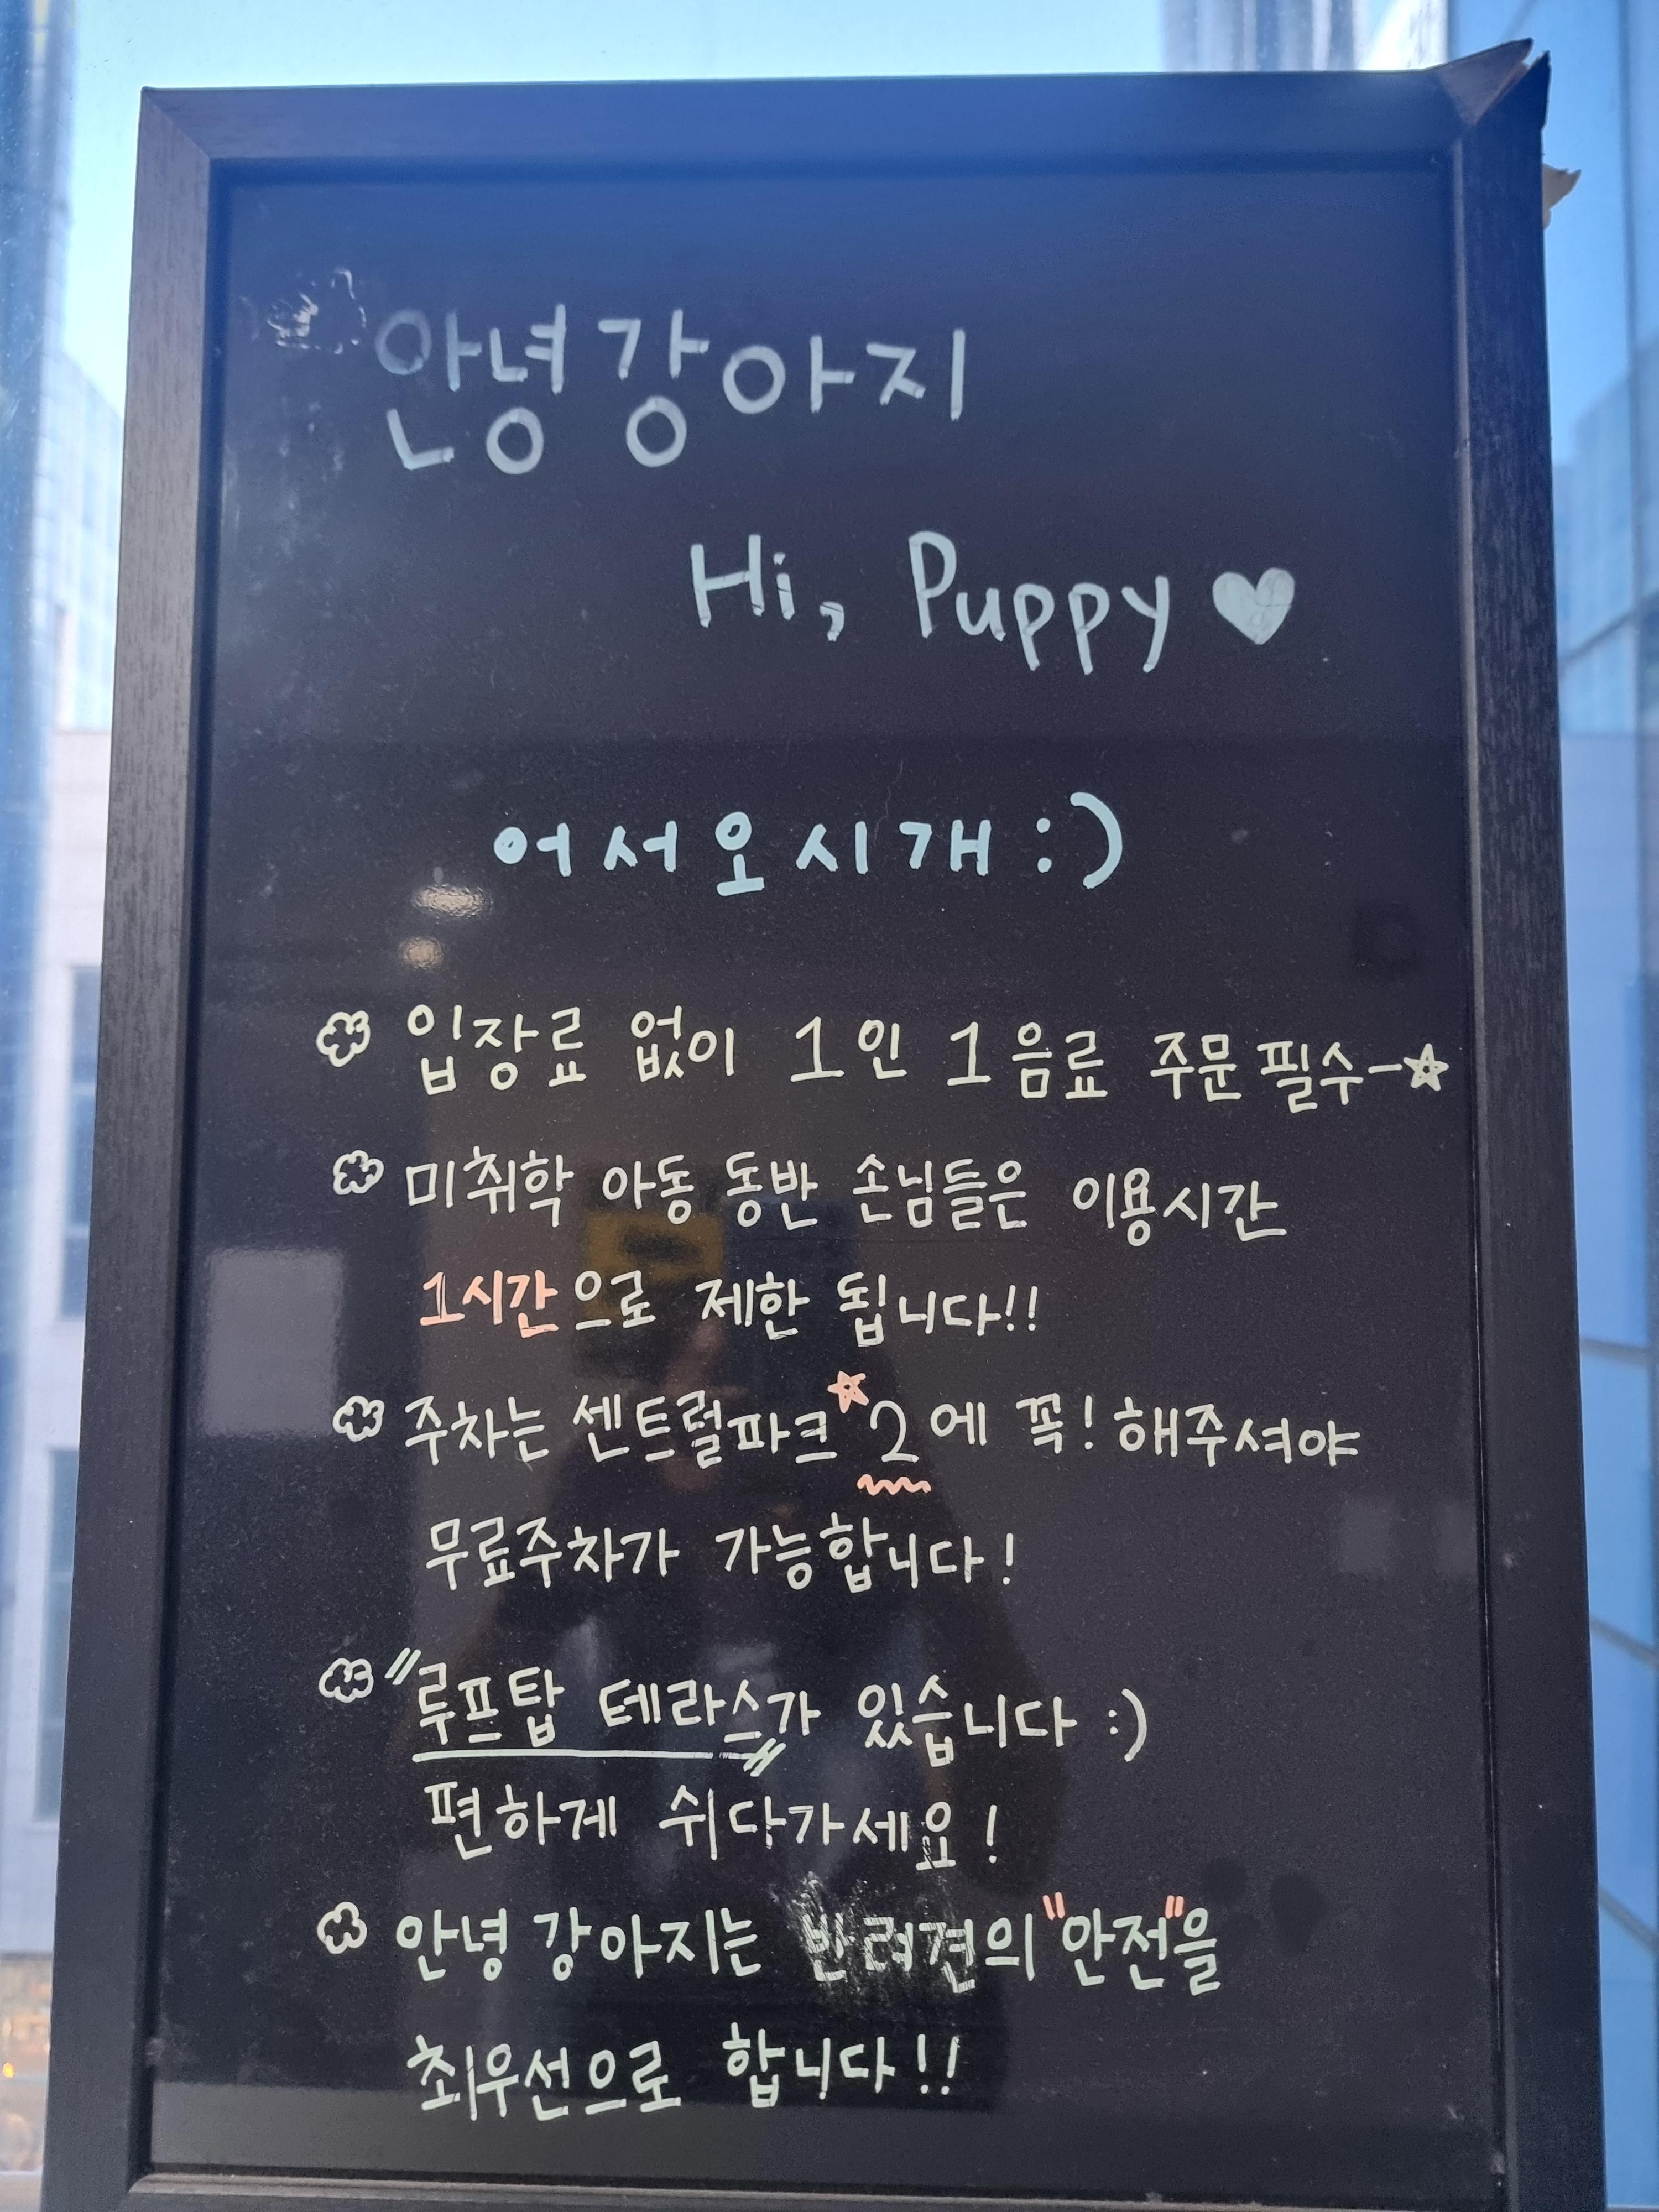 안녕강아지
Hi, Puppy ♥
어서오시개:)
입장료 없이 1인 1음료 주문필수-☆
미취학 아동 동반 손님들은 이용시간
1시간으로 제한 됩니다!!
주차는 센트럴파크☆2에 꼭! 해주셔야
무료주차가 가능합니다!
"루프탑 테라스"가 있습니다 :)
편하게 쉬다가세요!
안녕강아지는 반려견의 "안전"을
최우선으로 합니다!!